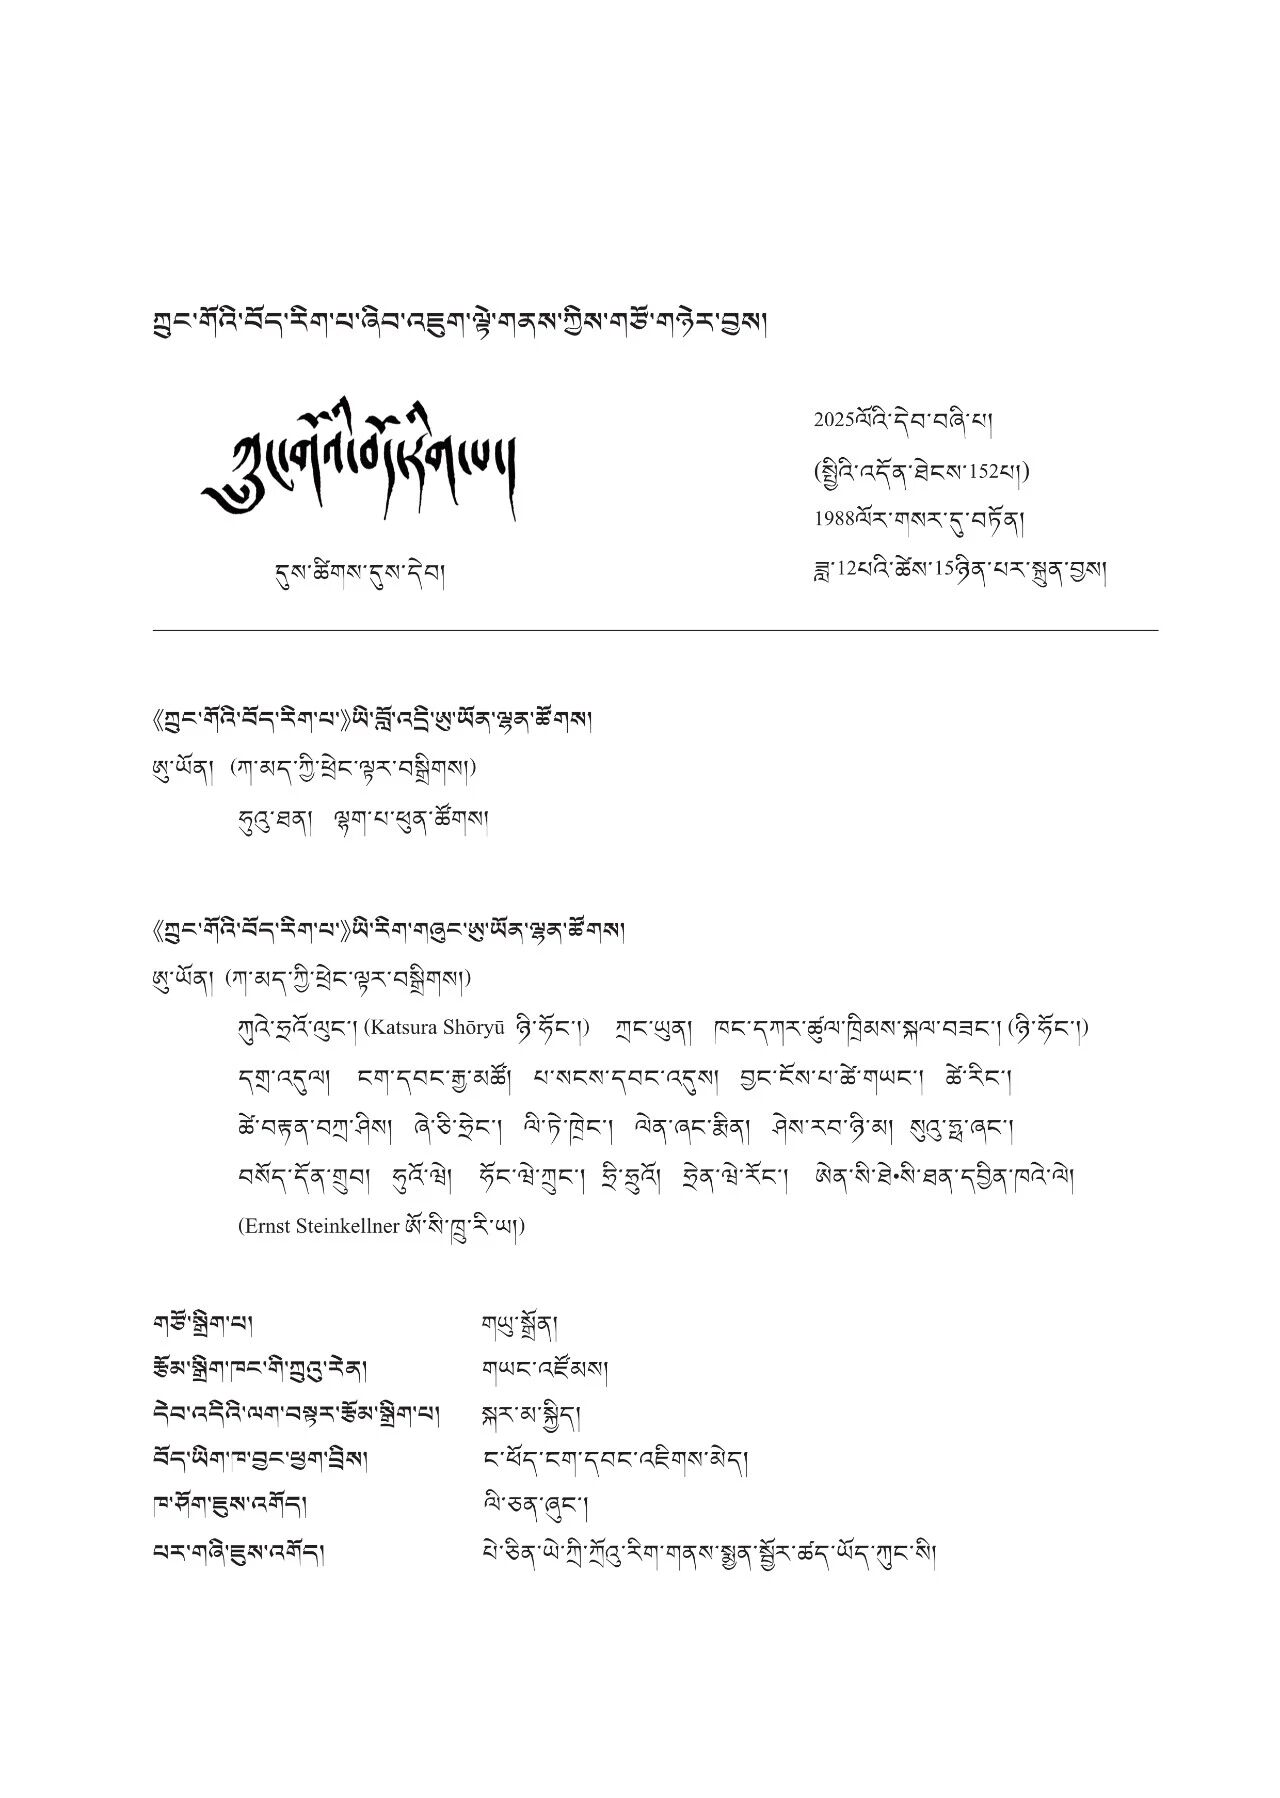 ཀྲུང་གོའི་བོད་རིག་པ་ཞིབ་འཇུག་ལྟེ་གནས་ཀྱིས་གཙོ་གཉེར་བྱས།
ཀྲུང་གོའི་བོད་རིག་པ།
དུས་ཚིགས་དུས་དེབ།
2025ལོའི་དེབ་བཞི་པ།
(སྤྱིའི་འདོན་ཐེངས་152པ།)
1988ལོར་གསར་དུ་བཏོན།
ཟླ་12པའི་ཚེས་15ཉིན་པར་སྐྲུན་བྱས།
《ཀྲུང་གོའི་བོད་རིག་པ་》ཡི་བློ་འདྲི་ཨུ་ཡོན་ལྷན་ཚོགས།
ཨུ་ཡོན། (ཀ་མད་ཀྱི་ཕྲེང་ལྟར་བསྒྲིགས།)
ཧུའུ་ཐན། ལྷག་པ་ཕུན་ཚོགས།
《ཀྲུང་གོའི་བོད་རིག་པ་》ཡི་རིག་གཞུང་ཨུ་ཡོན་ལྷན་ཚོགས།
ཨུ་ཡོན། (ཀ་མད་ཀྱི་ཕྲེང་ལྟར་བསྒྲིགས།)
ཀུའེ་ཧྲའོ་ལུང་། (Katsura Shōryū ཉི་ཧོང་།) ཀྲང་ཡུན། ཁང་དཀར་ཚུལ་ཁྲིམས་སྐལ་བཟང་། (ཉི་ཧོང་།)
དགྲ་འདུལ། ངག་དབང་རྒྱ་མཚོ། པ་སངས་དབང་འདུས། བྱང་ངོས་པ་ཚེ་གཡང་། ཚེ་རིང་།
ཚེ་བརྟན་བཀྲ་ཤིས། ཞེ་ཅི་ཧྲེང་། ལི་ཏེ་ཁྲེང་། ལེན་ཞང་རྨིན། ཤེས་རབ་ཉི་མ། སུའུ་ཧྥ་ཞང་།
བསོད་དོན་གྲུབ། ཧུའོ་ཝེ། ཧོང་ཝེ་ཀྲུང་། ཧྲི་ཧྲུའོ། ཧྲེན་ཝེ་རོང་། ཨེན་སི་ཐེ་•སི་ཐན་དབྱིན་ཁའེ་ལེ།
(Ernst Steinkellner ཨོ་སི་ཁྲུ་རི་ཡ།)
གཙོ་སྒྲིག་པ། གཡུ་སྒྲོན།
རྩོམ་སྒྲིག་ཁང་གི་ཀྲུའུ་རེན། གཡང་འཛོམས།
དེབ་འདིའི་ལག་བསྟར་རྩོམ་སྒྲིག་པ། སྐར་མ་སྐྱིད།
བོད་ཡིག་ཁ་བྱང་ཕྱག་བྲིས། ང་ཕོད་ངག་དབང་འཇིགས་མེད།
ཁ་ཤོག་ཇུས་འགོད། ལི་ཅན་ཞུང་།
པར་གཞི་ཇུས་འགོད། པེ་ཅིན་ཡེ་ཀྲི་ཀྲོའུ་རིག་གནས་སྨྱན་སྦྱོར་ཚད་ཡོད་ཀུང་སི།